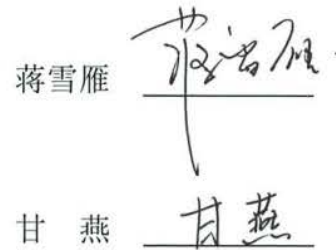 蒋雪雁 蒋雪雁
甘 燕 甘燕